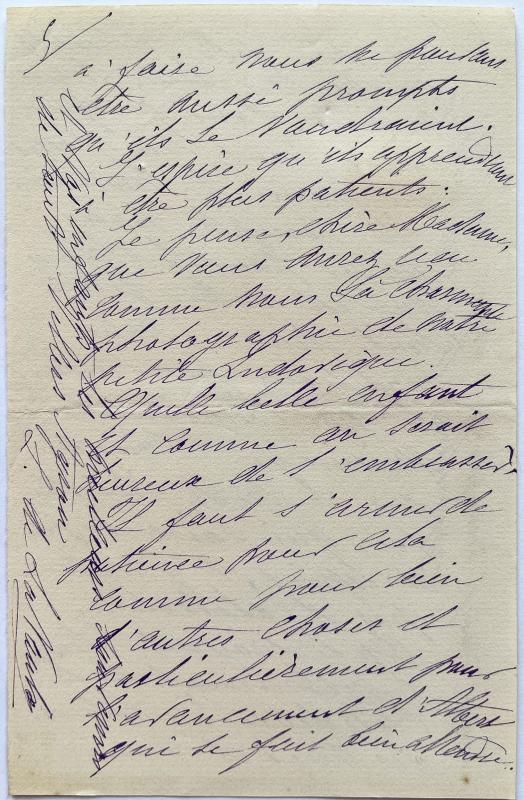 5/
à faire nous ne pouvons
être aussi prompts
qu'ils le voudraient.
J'espère qu'ils apprendront
être plus patients.
Je pense, chère Madame,
que vous aurez reçu
comme nous la charmante
photographie de notre
petite Ludovique.
Quelle belle enfant
et comme on serait
heureux de l'embrasser
Il faut s'armer de
patience pour cela
comme pour bien
d'autres choses et
particulièrement pour
l'avancement d'Albert
qui se fait bien attendre.